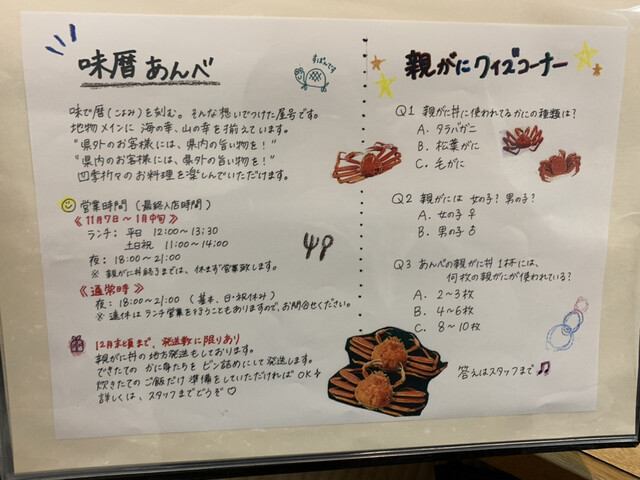 味暦 あんべ
すっぽんです
味で暦(こよみ)を刻む。そんな想いでつけた屋号です。
地物メインに 海の幸、山の幸を揃えています。
"県外のお客様には、県内の旨い物を!"
"県内のお客様には、県外の旨い物を!"
四季折々のお料理を楽しんでいただけます。
営業時間(最終入店時間)
《11月7日〜1月中旬》
ランチ: 平日 12:00〜13:30
土日祝 11:00〜14:00
夜: 18:00〜21:00
※ 親がに丼終了までは、休まず営業致します。
《通常時》
夜: 18:00〜21:00 (基本、日・祝休み)
※ 連休はランチ営業を行うこともありますので、お問合せください。
12月末頃まで、発送数に限りあり
親がに丼の地方発送もしております。
できたての かに身たちを ビン詰めにして発送します。
炊きたての ご飯だけ 準備をしていただければ OK
詳しくは、スタッフまでどうぞ♡
親がにクイズコーナー
Q1 親がに丼に使われてるかにの種類は?
A. タラバガニ
B. 松葉がに
C. 毛がに
Q2 親がには 女の子? 男の子?
A. 女の子♀
B. 男の子♂
Q3 あんべの親がに丼 1杯には、
何枚の親がにが使われている?
A. 2〜3枚
B. 4〜6枚
C. 8〜10枚
答えはスタッフまで♫